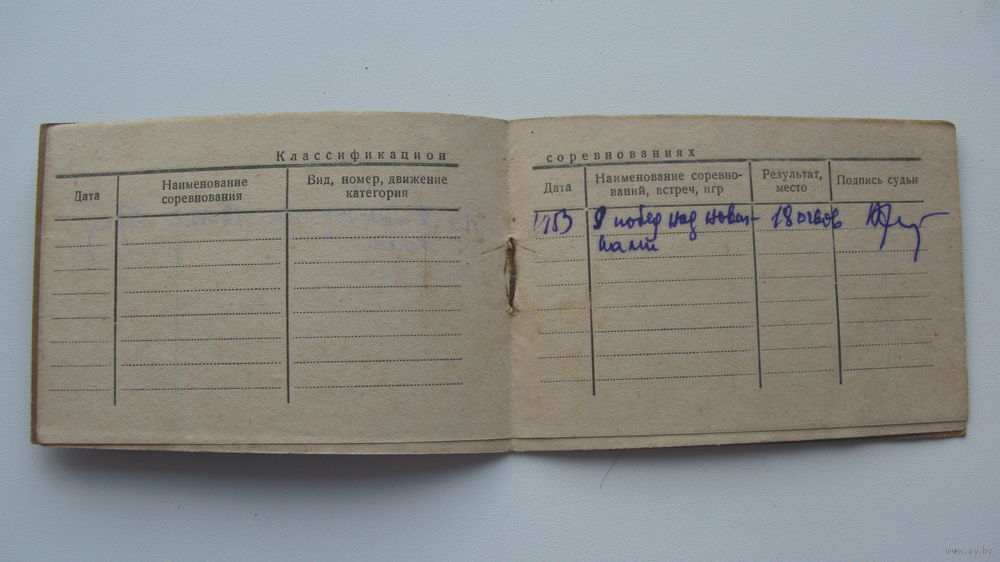 Классификацион
Дата
Наименование
соревнования
Вид, номер, движение
категория
соревнованиях
Дата
Наименование соревно-
ваний, встреч, игр
Результат,
место
Подпись судьи
1953
9 побед над нович-
ками
18 очков
www.ay.by